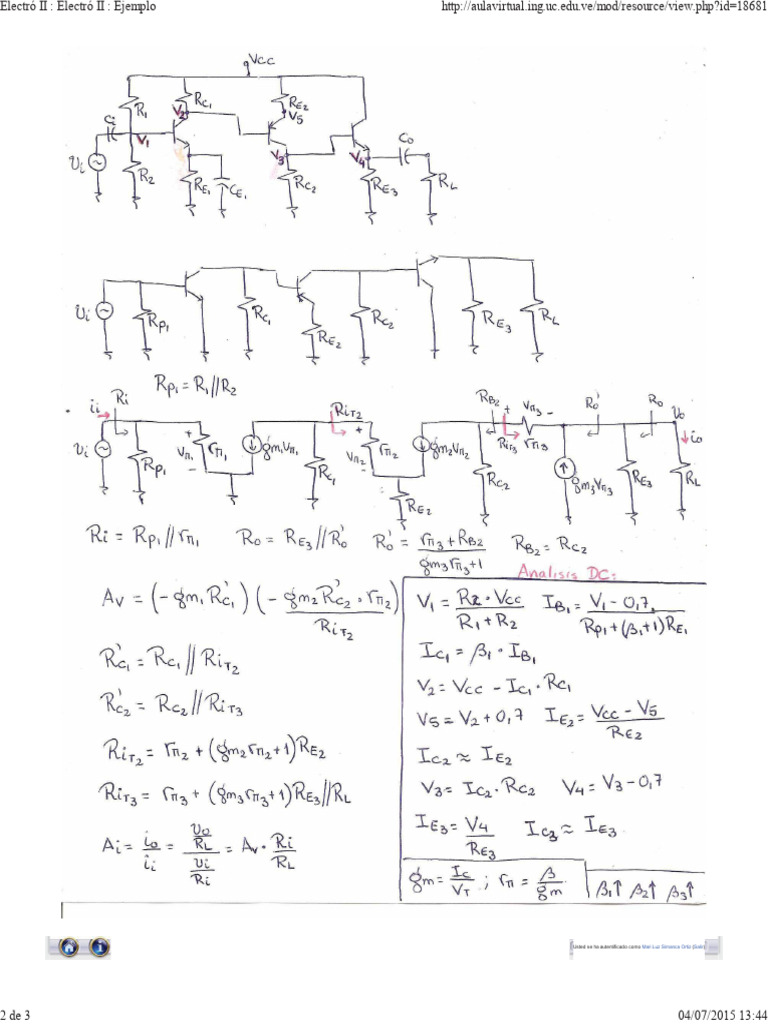 Electró II : Electró II : Ejemplo
http://aulavirtual.ing.uc.edu.ve/mod/resource/view.php?id=18681
Vcc
Ci R1 V2 RC1 RE2 V5
V1 V3 V4 Co
Ui R2 RE1 CE1 RC2 RE3 RL
Ui Rp1 RC1 RE2 RC2 RE3 RL
Rp1 = R1//R2
ii Ri RiT2 RB2 + Vπ3 - Ro' Ro Uo
Ui Rp1 + Vπ1 - rπ1 gm1Vπ1 RC1 + Vπ2 - rπ2 gm2Vπ2 RiT3 rπ3 io
RE2 RC2 gm3Vπ3 RE3 RL
Ri = Rp1//rπ1 Ro = RE3//Ro' Ro' = (rπ3 + RB2)/(gm3rπ3+1) RB2 = RC2
Av = (-gm1 RC1') (-gm2RC2'·rπ2/RiT2)
RC1' = RC1//RiT2
RC2' = RC2//RiT3
RiT2 = rπ2 + (gm2rπ2+1)RE2
RiT3 = rπ3 + (gm3rπ3+1)RE3//RL
Ai = io/ii = (Uo/RL)/(Ui/Ri) = Av·Ri/RL
Analisis DC:
V1 = R2·Vcc/(R1+R2) IB1 = (V1-0,7)/(Rp1+(β1+1)RE1)
IC1 = β1·IB1
V2 = Vcc - IC1·RC1
V5 = V2+0,7 IE2 = (Vcc-V5)/RE2
IC2 ≈ IE2
V3 = IC2·RC2 V4 = V3-0,7
IE3 = V4/RE3 IC3 ≈ IE3
gm = Ic/VT ; rπ = β/gm
β1↑ β2↑ β3↑
Usted se ha autentificado como
2 de 3
04/07/2015 13:44